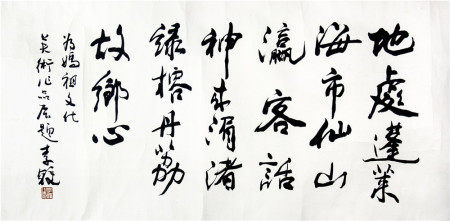 地處蓬萊
海市仙山
瀛客話
神来湄渚
緑榕丹荔
故鄉心
为媽祖文化
美術作品展題 李鐸